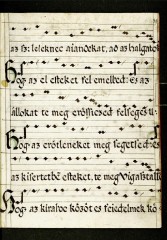 az sz: leleknec aiandekat, ad az halgatok
Hog az el esteket fel emelhed: es az
allokat te meg erőssiczed felseges u:
Hog az erőtleneket meg segetsed: es
az kisertetbē esteket, te meg vigasztalla
Hog az kiraloc közöt es feiedelmek kö: